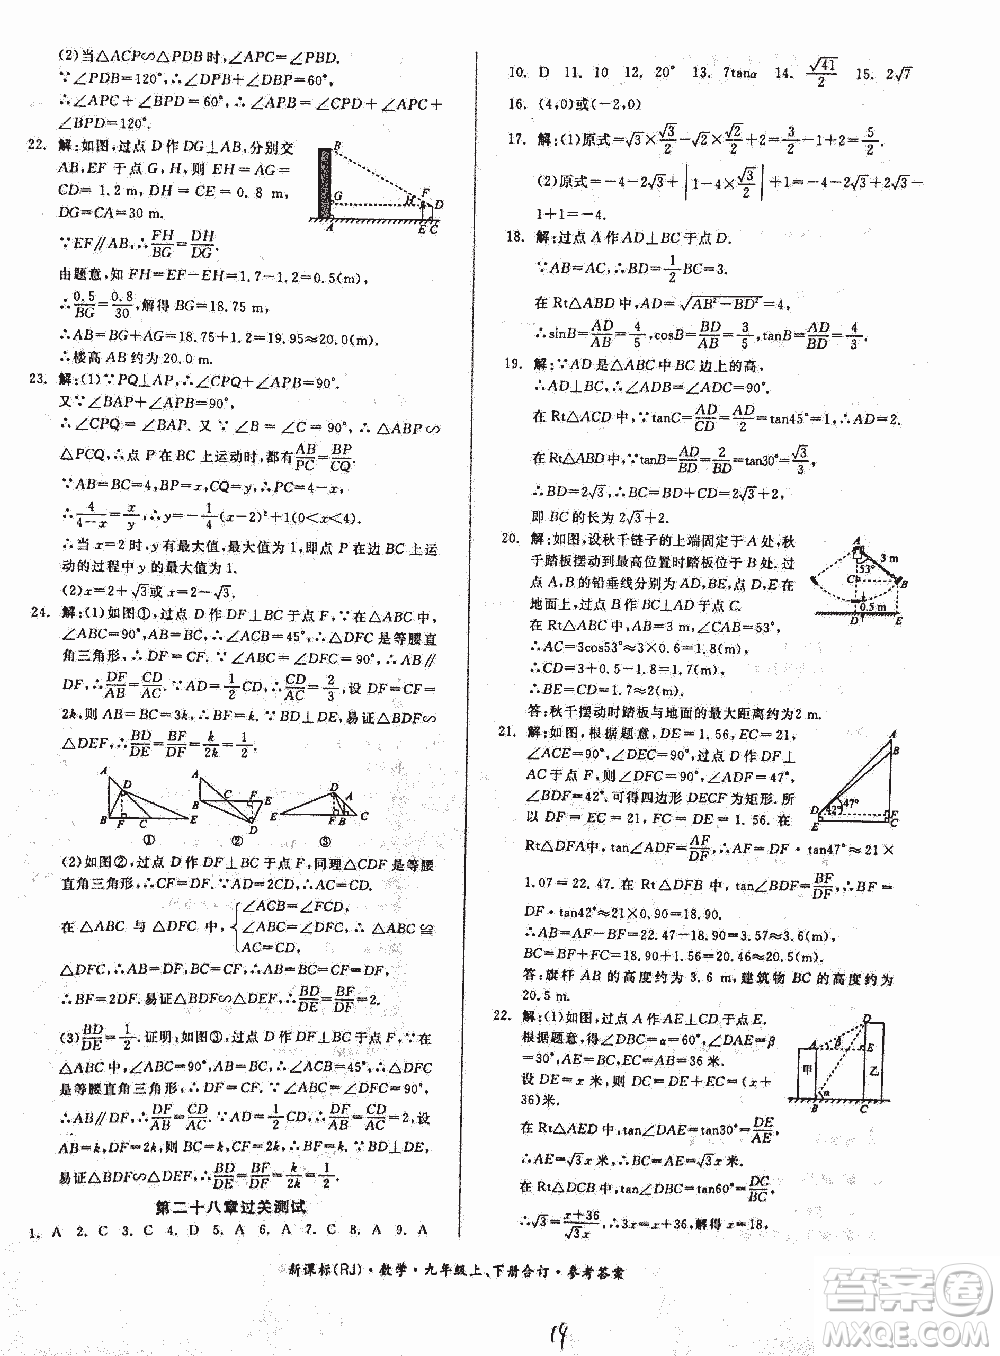 (2)当△ACP∽△PDB时,∠APC=∠PBD.
∵∠PDB=120°,∴∠DPB+∠DBP=60°,
∴∠APC+∠BPD=60°,∴∠APB=∠CPD+∠APC+
∠BPD=120°.
22. 解:如图,过点D作DG⊥AB,分别交
AB,EF于点G,H,则EH=AG=
CD=1.2 m,DH=CE=0.8 m,
DG=CA=30 m.
∵EF∥AB,∴FH/BG=DH/DG.
由题意,知FH=EF-EH=1.7-1.2=0.5(m)
∴0.5/BG=0.8/30,解得BG=18.75 m.
∴AB=BG+AG=18.75+1.2=19.95≈20.0(m).
∴楼高AB约为20.0 m.
23. 解:(1)∵PQ⊥AP,∴∠CPQ+∠APB=90°.
又∵∠BAP+∠APB=90°,
∴∠CPQ=∠BAP. 又∵∠B=∠C=90°,∴△ABP∽
△PCQ,∴当点P在BC上运动时,都有AB/PC=BP/CQ.
∵AB=BC=4,BP=x,∴PC=4-x,
∴4/(4-x)=x/y,∴y=-1/4(x-2)²+1(0<x<4).
∴当x=2时,y有最大值,最大值为1,即点P在BC上运
动的过程中y的最大值为1.
(2)x=2+√3或x=2-√3.
24. 解:(1)如图①,过点D作DF⊥BC于点F,∵在△ABC中,
∠ABC=90°,AB=BC,∴∠ACB=45°,∴△ABC是等腰直
角三角形,∴DF=CF.∵∠ABC=∠DFC=90°,∴AB∥
DF,∴DF/AB=DC/AC.∵AD/CD=1/2,∴CD/AC=2/3,设DF=CF=
2k,则BC=AB=3k,∴BF=k.∵BD⊥DE,易证△BDF∽
△DEF,∴BD/DE=BF/DF=k/2k=1/2.
① ② ③
(2)如图②,过点D作DF⊥BC于点F,同理△CDF是等腰
直角三角形,∴CF=DF.∵AD/CD=2,∴AC=CD.
在△ABC与△DFC中,{∠ACB=∠FCD, ∠ABC=∠DFC, AC=CD, ∴△ABC≌
△DFC,∴AB=DF,∴BC=CF,
∴BF=2DF.易证△BDF∽△DEF,∴BD/DE=BF/DF=2.
(3)BD/DE=1/2.证明:如图③,过点D作DF⊥BC于点F.∵在
△ABC中,∠ABC=90°,AB=BC,∴∠ACB=45°,∴△ABC
是等腰直角三角形,∴DF=CF.∵∠ABC=∠DFC=90°,
∴AB∥DF,∴DF/AB=CD/AC.∵AD/CD=1/2,∴DF/AB=CD/AC=2,设
AB=k,则DF=2k,则BC=AB=k,∴BF=k.∵BD⊥DE,
易证△BDF∽△DEF,∴BD/DE=BF/DF=k/2k=1/2.
第二十八章过关测试
1. A 2. C 3. C 4. D 5. A 6. A 7. C 8. A 9. A
10. D 11. 10 12. 20° 13. 7tanα 14. √41/2 15. 2√7
16. (4,0)或(-2,0)
17. 解:(1)原式=√3×√3/2-√2×√2/2+2=3/2-1+2=5/2.
(2)原式=-4-2√3+|1-4×√3/2|+1=-4-2√3+2√3-
1+1=-4.
18. 解:过点A作AD⊥BC于点D.
∵AB=AC,∴BD=1/2BC=3.
在Rt△ABD中,AD=√(AB²-BD²)=4,
∴sinB=AD/AB=4/5,cosB=BD/AB=3/5,tanB=AD/BD=4/3.
19. 解:∵AD是△ABC中BC边上的高,
∴AD⊥BC,∴∠ADB=∠ADC=90°.
在Rt△ACD中,∵tanC=AD/CD=AD/2=tan45°=1,∴AD=2.
在Rt△ABD中,∵tanB=AD/BD=2/BD=tan30°=√3/3,
∴BD=2√3,∴BC=BD+CD=2√3+2,
即BC的长为2√3+2.
20. 解:如图,设秋千链子的上端固定于A处,秋
千踏板摆动到最高位置时踏板位于B处.过
点A,B的铅垂线分别为AD,BE,点D,E在
地面上,过点B作BC⊥AD于点C.
在Rt△ABC中,∵AB=3 m,∠CAB=53°,
∴AC=3cos53°≈3×0.6=1.8(m),
∴CD≈3+0.5-1.8=1.7(m),
∴BE=CD=1.7≈2(m).
答:秋千摆动时踏板与地面的最大距离约为2 m.
21. 解:根据题意,得DE=1.56,EC=21,
∠ACE=90°,∠DEC=90°,过点D作DF⊥
AC于点F,则∠DFC=90°,∠ADF=47°,
∠BDF=42°.可得四边形DECF为矩形.所
以DF=EC=21,FC=DE=1.56.在
Rt△DFA中,tan∠ADF=AF/DF,∴AF=DF·tan47°≈21×
1.07=22.47.在Rt△DFB中,tan∠BDF=BF/DF,∴BF=
DF·tan42°≈21×0.90=18.90.
∴AB=AF-BF=22.47-18.90=3.57≈3.6(m),
BC=BF+FC=18.90+1.56=20.46≈20.5(m).
答:旗杆AB的高度约为3.6 m,建筑物BC的高度约为
20.5 m.
22. 解:(1)如图,作AE⊥CD于点E.
根据题意,得∠DBC=α=60°,∠DAE=β
=30°,AE=BC,EC=AB=36米.
设DE=x米,则DC=DE+EC=(x+
36)米.
在Rt△AED中,tan∠DAE=tan30°=DE/AE,
∴AE=√3x米,∴BC=AE=√3x米.
在Rt△DCB中,tan∠DBC=tan60°=DC/BC,
∴√3=(x+36)/√3x,∴3x=x+36,解得x=18,
新课标(RJ)·数学·九年级上、下册合订·参考答案
19
答案圈
MXQE.COM